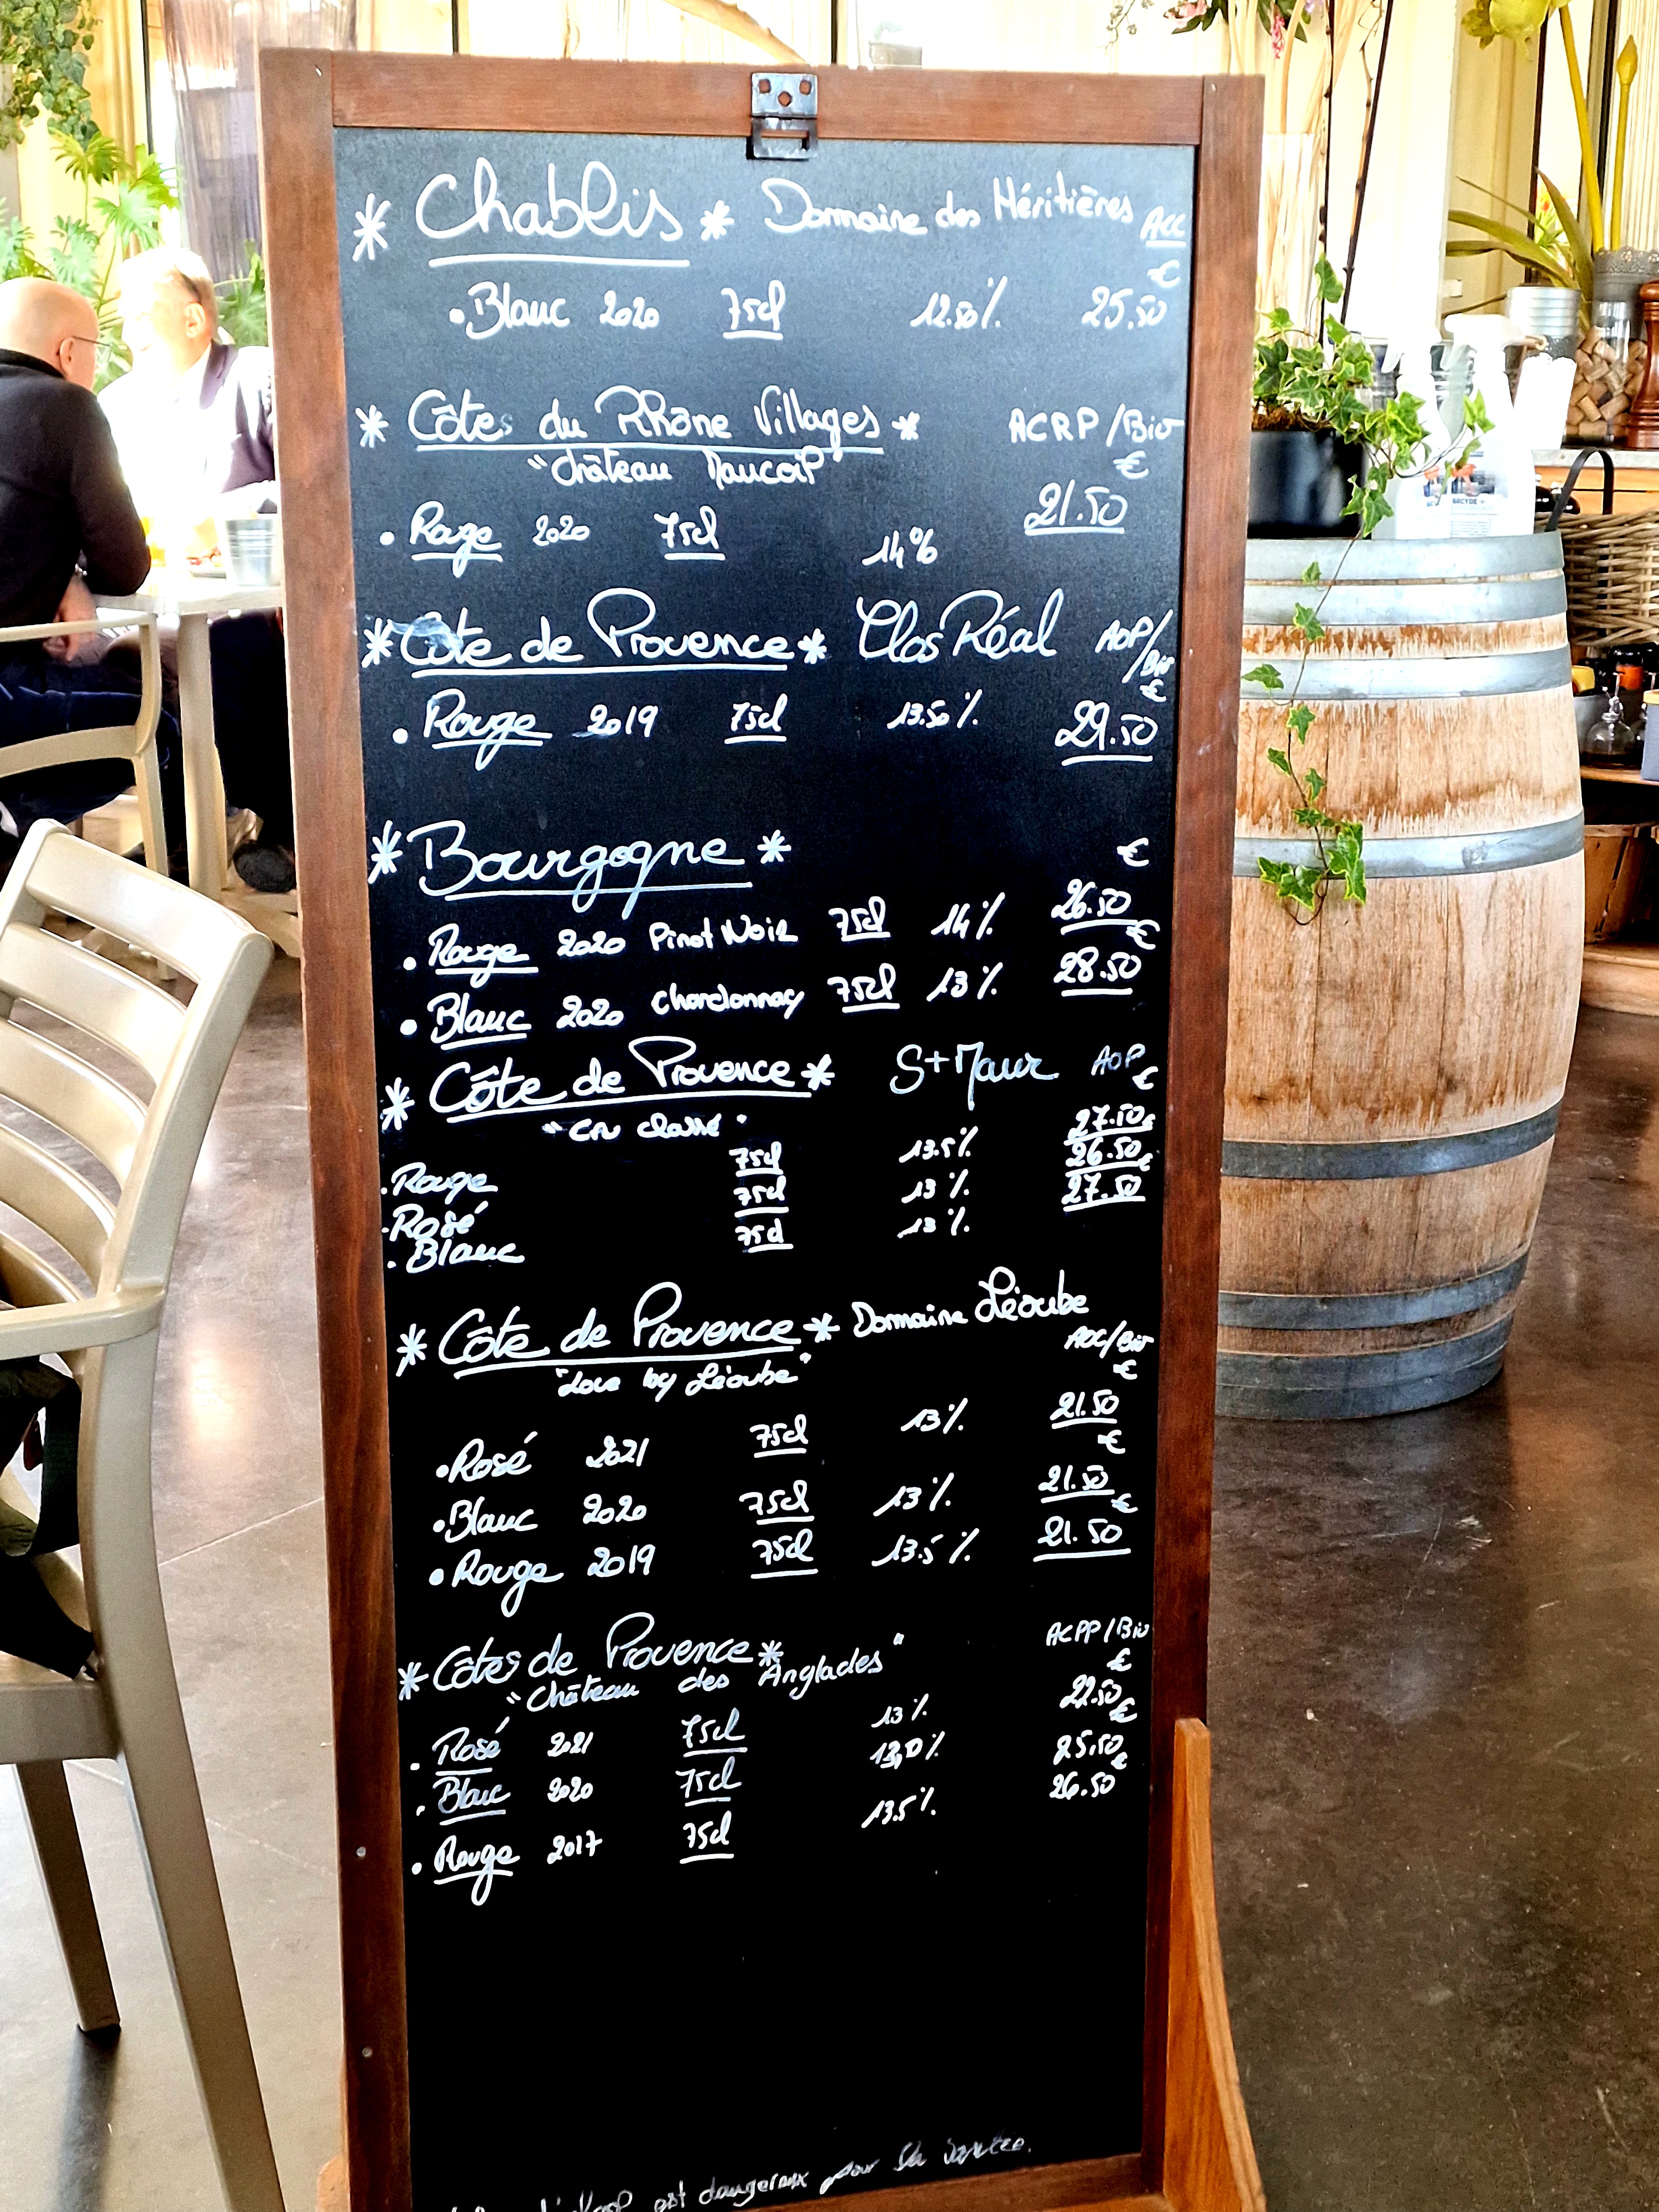 * Chablis * Domaine des Héritières ACC
€
• Blanc 2020 75cl 12.50% 25.50
* Côtes du Rhône Villages * ACRP/Bio
"Château Maucoil" €
• Rouge 2020 75cl 14% 21.50
* Côte de Provence * Clos Réal AOP/Bio
€
• Rouge 2019 75cl 13.50% 29.50
* Bourgogne * €
• Rouge 2020 Pinot Noir 75cl 14% 26.50
€
• Blanc 2020 Chardonnay 75cl 13% 28.50
* Côte de Provence * St Maur AOP
€
"Cru classé"
• Rouge 75cl 13.5% 27.50€
• Rosé 75cl 13% 26.50€
• Blanc 75cl 13% 27.50
* Côte de Provence * Domaine Léoube
AOC/Bio
"Love by Léoube" €
• Rosé 2021 75cl 13% 21.50
€
• Blanc 2020 75cl 13% 21.50
€
• Rouge 2019 75cl 13.5% 21.50
* Côtes de Provence * ACPP/Bio
"Château des Anglades" €
• Rosé 2021 75cl 13% 22.50
€
• Blanc 2020 75cl 25.50
€
• Rouge 2017 75cl 13.5% 26.50
est dangereux pour la